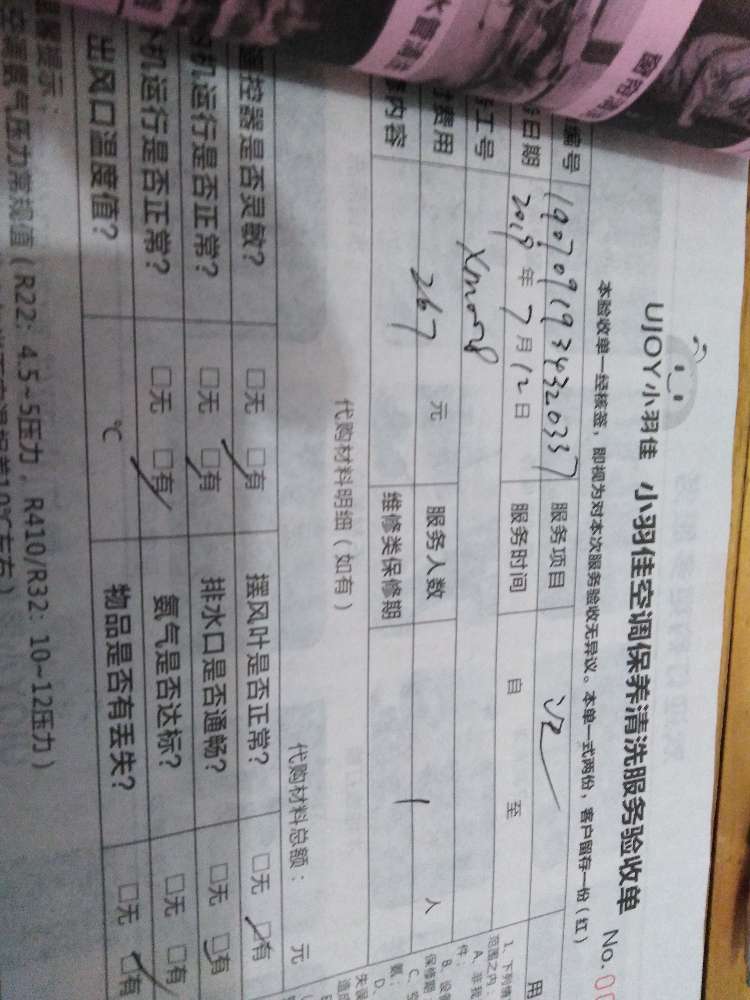 UJOY小羽佳 小羽佳空调保养清洗服务验收单 No.
本验收单一经核签，即视为对本次服务验收无异议。本单一式两份，客户留存一份（红）
编号 1907091934320337 服务项目
日期 2019年7月12日 服务时间 自 至
工号
费用 267 元 服务人数 1 人
内容 维修类保修期
代购材料明细（如有） 代购材料总额： 元
遥控器是否灵敏？ □无 □有 摆风叶是否正常？ □无 □有
机运行是否正常？ □无 □有 排水口是否通畅？ □无 □有
机运行是否正常？ □无 □有 氨气是否达标？ □无 □有
出风口温度值？ ℃ 物品是否有丢失？ □无 □有
提示：
氨气压力常规值（R22：4.5~5压力，R410/R32：10~12压力）
用
1、下列情
范围之内：
A、非我
件；
B、设备
保修期
C、空
氨；
D、